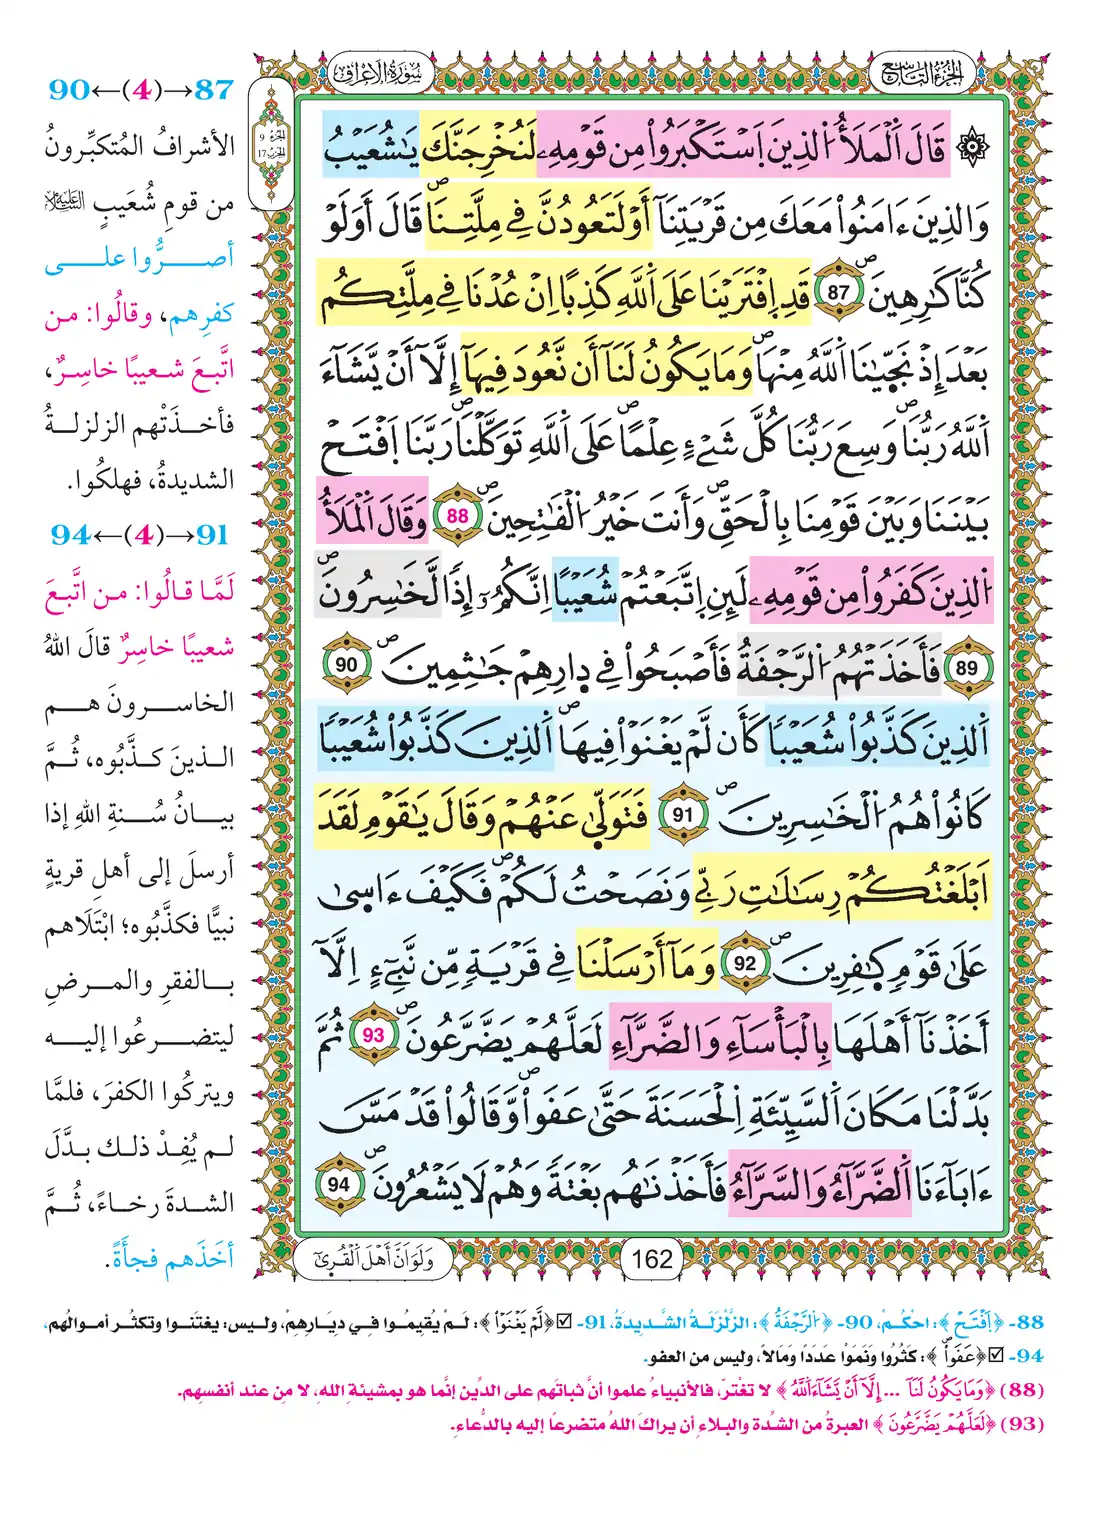 الجزء التاسع
سورة الأعراف
الجزء 9
الحزب 17
قَالَ اَ۬لْمَلَأُ اُ۬لذِينَ اَ۪سْتَكْبَرُواْ مِن قَوْمِهِۦ لَنُخْرِجَنَّكَ يَٰشُعَيْبُ
وَالذِينَ ءَامَنُواْ مَعَكَ مِن قَرْيَتِنَآ أَوْ لَتَعُودُنَّ فِے مِلَّتِنَاۖ قَالَ أَوَلَوْ
كُنَّا كَٰرِهِينَۖ 87 قَدِ اِ۪فْتَرَيْنَا عَلَى اَ۬للَّهِ كَذِباً اِنْ عُدْنَا فِے مِلَّتِكُم
بَعْدَ إِذْ نَجَّيٰنَا اَ۬للَّهُ مِنْهَاۖ وَمَا يَكُونُ لَنَآ أَن نَّعُودَ فِيهَآ إِلَّآ أَنْ يَّشَآءَ
اَ۬للَّهُ رَبُّنَاۖ وَسِعَ رَبُّنَا كُلَّ شَےْءٍ عِلْماًۖ عَلَى اَ۬للَّهِ تَوَكَّلْنَاۖ رَبَّنَا اَ۪فْتَحْ
بَيْنَنَا وَبَيْنَ قَوْمِنَا بِالْحَقِّۖ وَأَنتَ خَيْرُ اُ۬لْفَٰتِحِينَۖ 88 وَقَالَ اَ۬لْمَلَأُ
اُ۬لذِينَ كَفَرُواْ مِن قَوْمِهِۦ لَئِنِ اِ۪تَّبَعْتُمْ شُعَيْباً اِنَّكُمُۥٓ إِذاً لَّخَٰسِرُونَۖ
89 فَأَخَذَتْهُمُ اُ۬لرَّجْفَةُ فَأَصْبَحُواْ فِے دِارِهِمْ جَٰثِمِينَۖ 90
اَ۬لذِينَ كَذَّبُواْ شُعَيْباً كَأَن لَّمْ يَغْنَوْاْ فِيهَاۖ اَ۬لذِينَ كَذَّبُواْ شُعَيْباً
كَانُواْ هُمُ اُ۬لْخَٰسِرِينَۖ 91 فَتَوَلّ۪ىٰ عَنْهُمْ وَقَالَ يَٰقَوْمِ لَقَدَ
اَبْلَغْتُكُمْ رِسَٰلَٰتِ رَبِّے وَنَصَحْتُ لَكُمْۖ فَكَيْفَ ءَاس۪ىٰ
عَلَىٰ قَوْمٍ كٰ۪فِرِينَۖ 92 وَمَآ أَرْسَلْنَا فِے قَرْيَةٍ مِّن نَّبِےٓءٍ اِلَّآ
أَخَذْنَآ أَهْلَهَا بِالْبَأْسَآءِ وَالضَّرَّآءِ لَعَلَّهُمْ يَضَّرَّعُونَۖ 93 ثُمَّ
بَدَّلْنَا مَكَانَ اَ۬لسَّيِّئَةِ اِ۬لْحَسَنَةَ حَتَّىٰ عَفَواْۖ وَّقَالُواْ قَدْ مَسَّ
ءَابَآءَنَا اَ۬لضَّرَّآءُ وَالسَّرَّآءُ فَأَخَذْنَٰهُم بَغْتَةً وَهُمْ لَا يَشْعُرُونَۖ 94
162
وَلَوَ اَنَّ أَهْلَ اَ۬لْقُر۪ىٰٓ
87→(4)←90
الأشرافُ المُتكبِّرونُ
من قومِ شُعَيبٍ عليه السلام
أصـرُّوا علـى
كفرِهم، وقالُوا: من
اتَّبعَ شعيبًا خاسِرٌ،
فأخذَتْهم الزلزلةُ
الشديدةُ، فهلكُوا.
91→(4)←94
لَمَّا قالُوا: من اتَّبعَ
شعيبًا خاسِرٌ قالَ اللهُ
الخاسرونَ هم
الذينَ كذَّبُوه، ثُمَّ
بيانُ سُنةِ اللهِ إذا
أرسلَ إلى أهلِ قريةٍ
نبيًّا فكذَّبُوه؛ ابْتَلَاهم
بالفقرِ والمرضِ
ليتضرعُوا إليه
ويتركُوا الكفرَ، فلمَّا
لم يُفِدْ ذلك بدَّلَ
الشدةَ رخاءً، ثُمَّ
أخَذَهم فجأَةً.
88- ﴿اَ۪فْتَحْ﴾: احْكُمْ، 90- ﴿اُ۬لرَّجْفَةُ﴾: الزَّلْزَلَةُ الشَّدِيدَةُ، 91- ☑﴿لَّمْ يَغْنَوْاْ﴾: لَمْ يُقِيمُوا فِي دِيَارِهِمْ، وليس: يغتَنوا وتكثُر أموالُهم،
94- ☑﴿عَفَواْۖ﴾: كَثُرُوا وَنَمَوْا عَدَدًا وَمَالًا، وليس من العفو.
(88) ﴿وَمَا يَكُونُ لَنَآ ... إِلَّآ أَنْ يَّشَآءَ اَ۬للَّهُ﴾ لا تغْترّ، فالأنبياءُ علموا أنَّ ثباتَهم على الدِّين إنَّما هو بمشيئةِ الله، لا من عند أنفسِهم.
(93) ﴿لَعَلَّهُمْ يَضَّرَّعُونَ﴾ العبرةُ من الشدَّة والبلاءِ أن يراكَ اللهُ متضرعًا إليه بالدُّعاءِ.